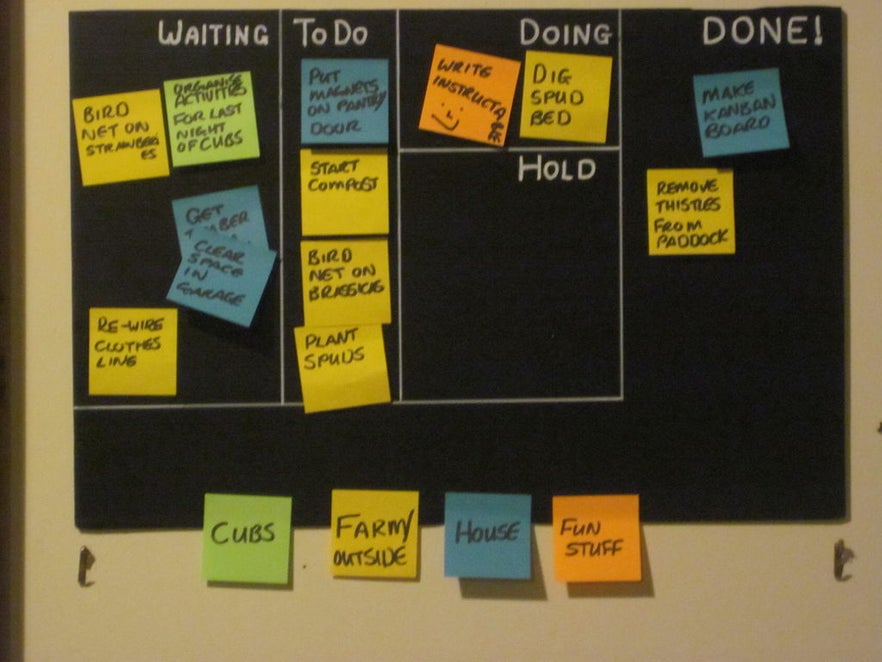 WAITING
TO DO
DOING
DONE!
HOLD
BIRD
NET ON
STRAWBERRI
ES
ORGANISE
ACTIVITIES
FOR LAST
NIGHT
OF CUBS
GET
CLEAR
SPACE
IN
GARAGE
RE-WIRE
CLOTHES
LINE
PUT
MAGNETS
ON PANTRY
DOOR
START
COMPOST
BIRD
NET ON
BRASSICAS
PLANT
SPUDS
WRITE
INSTRUCTA
BLE
DIG
SPUD
BED
MAKE
KANBAN
BOARD
REMOVE
THISTLES
FROM
PADDOCK
CUBS
FARM/
OUTSIDE
HOUSE
FUN
STUFF